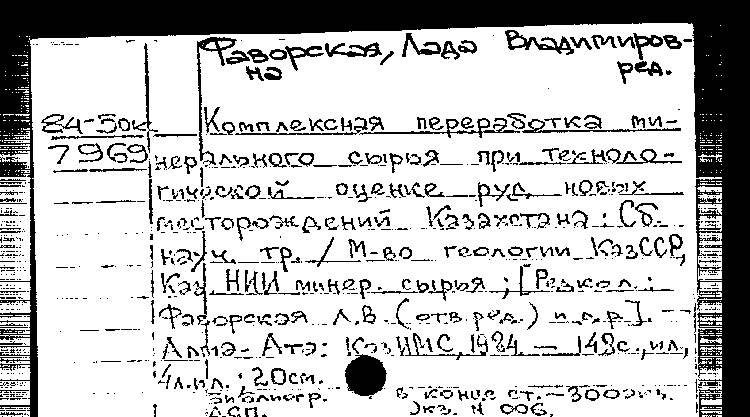 Фаворская, Лада Владимиров-
на ред.
84-50к Комплексная переработка ми-
7969 нерального сырья при техноло-
гической оценке руд новых
месторождений Казахстана : Сб.
науч. тр. / М-во геологии КазССР,
Каз. НИИ минер. сырья ; [Редкол. :
Фаворская Л.В. (отв. ред.) и др.]. —
Алма-Ата : КазИМС, 1984. — 148с., ил.,
4л.ил. ; 20см.
Библиогр. в конце ст. — 300экз.
ДСП. Экз. N 006.